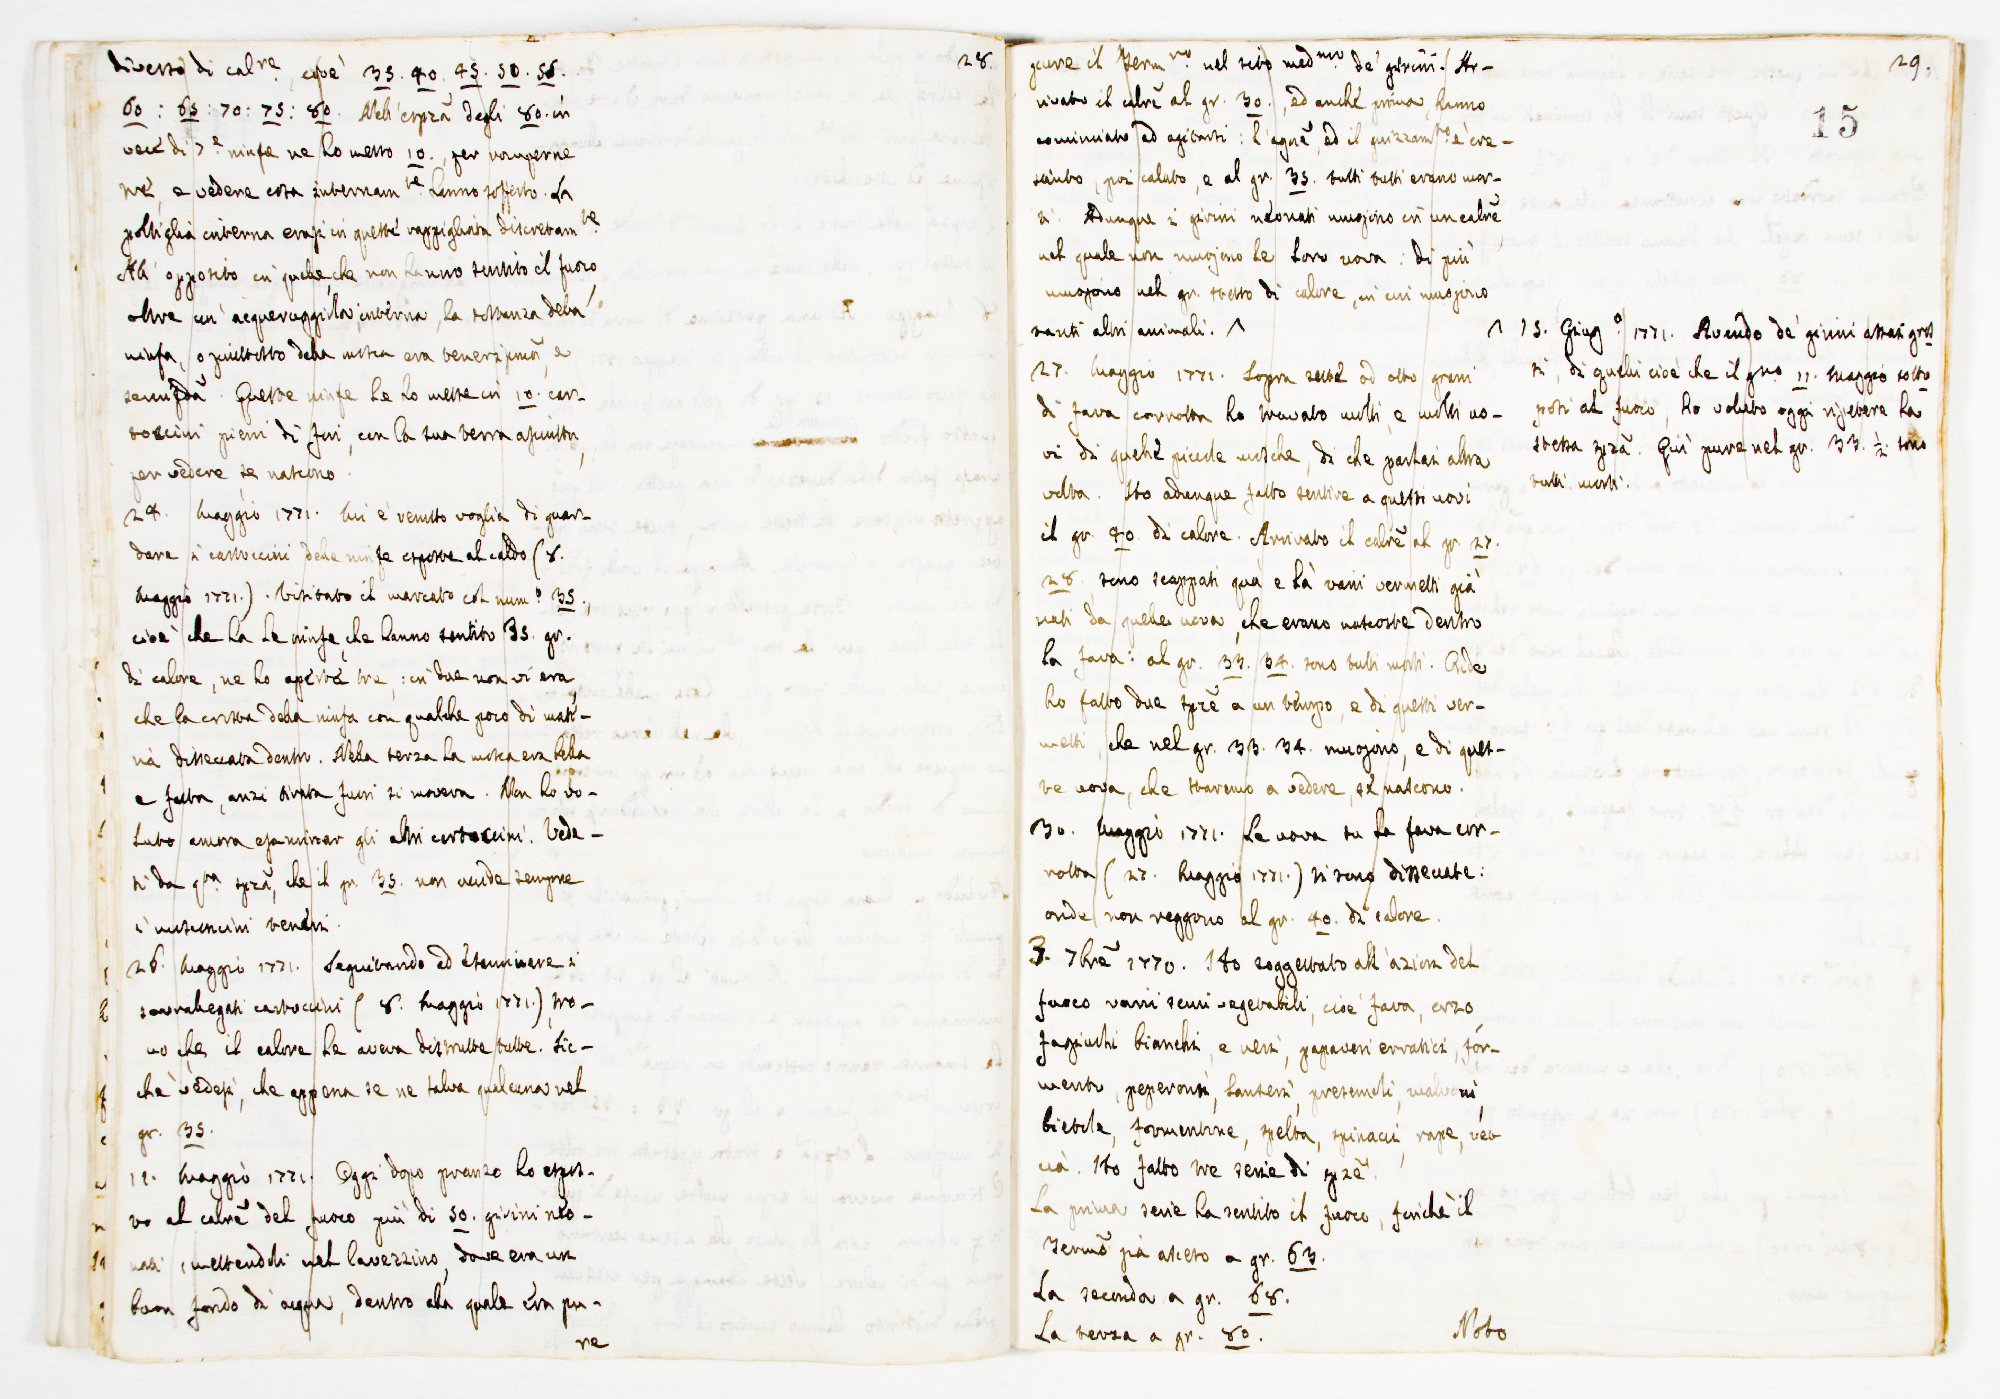 28.
diverso di calre, cioè 35. 40. 45. 50. 55.
60: 65: 70: 75: 80. Nell'esprza degli 80. in
vece di 7e ninfe ne ho messo 10., per romperne
tre, e vedere cosa internamte hanno sofferto. La
poltiglia interna erasi in queste rappigliata discretamte.
All'opposito in quelle, che non hanno sentito il fuoco
oltre un'acqueruggiola interna, la sostanza della
ninfa, o piuttosto della mosca era tenerissima, e
Queste ninfe le ho messe in 10. car-
toccini pieni di fori, con la sua terra asciutta,
per vedere se nascono.
24. Maggio 1771. Mi è venuto voglia di guar-
dare i cartoccini delle ninfe esposte al caldo (8.
Maggio 1771.). Visitato il marcato col numo 35.,
cioè che ha le ninfe, che hanno sentito 35. gr.
di calore, ne ho aperte tre,: in due non vi era
che la crosta della ninfa con qualche poco di mate-
ria disseccata dentro. Nella terza la mosca era bella
e fatta, anzi tirata fuori si moveva. Non ho vo-
luto ancora esaminar gli altri cartoccini. Vede-
si da qta sprza, che il gr. 35. non uccide sempre
i moscuccini teneri.
26. Maggio 1771. Seguitando ad esaminare i
sovrallegati cartoccini (8. Maggio 1771.), tro-
vo che il calore le aveva distrutte tutte. Sic-
chè vedesi, che appena se ne salva qualcuna nel
gr. 35.
11. Maggio 1771. Oggi dopo pranzo ho espos-
to al calre del fuoco più di 50. girini neo-
nati, mettendoli nel lavezzino, dove era un
buon fondo di acqua, dentro alla quale era pu-
re
29.
15
giure il Termro nel sito medmo de' girini. Ar-
rivato il calre al gr. 30., ed anche prima, hanno
cominciato ad agitarsi: l'agire, ed il guizzamto è cre-
sciuto, poi calato, e al gr. 35. tutti tutti erano mor-
ti. Adunque i girini neonati muojono in un calre
nel quale non muojono le loro uova: di più
muojono nel gr. stesso di calore, in cui muojono
tanti altri animali. ^
27. Maggio 1771. Sopra sette od otto grani
di fava corrotta ho trovato molti, e molti uo-
vi di quelle piccole mosche, di che parlasi altra
volta. Ho adunque fatto sentire a questi uovi
il gr. 40. di calore. Arrivato il calre al gr. 27.
28. sono scappati quà e là varii vermetti già
nati da quelle uova, che erano nascoste dentro
la fava: al gr. 33. 34. sono tutti morti. Onde
ho fatto due sprze a un tempo, e di questi ver-
metti, che nel gr. 33. 34. muojono, e di ques-
te uova, che staremo a vedere, se nascono.
30. Maggio 1771. Le uova su la fava cor-
rotta (27. Maggio 1771.) si sono disseccate:
onde non reggono al gr. 40. di calore.
3. 7bre 1770. Ho soggettato all'azion del
fuoco varii semi vegetabili, cioè fava, orzo
fagiuoli bianchi, e neri, papaveri erratici, for-
mento, peperonsi, lanteri, presemoli, malvoni,
bietole, formentone, spelta, spinacci, rape, vec-
cia. Ho fatto tre serie di sprze.
La prima serie ha sentito il fuoco, finchè il
Termo già asceso a gr. 63.
La seconda a gr. 68.
La terza a gr. 80.
Noto
^ 15. Giugo 1771. Avendo de' girini assai gros
si, di quelli cioè che il gno 11. Maggio sotto
posi al fuoco, ho voluto oggi ripetere la
stessa sprza. Qui pure nel gr. 33. ½. sono
tutti morti.